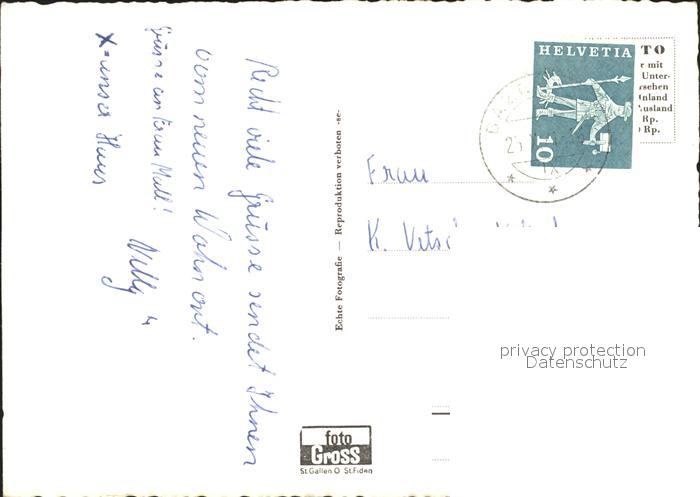 Recht viele Grüsse sendet Ihnen
vom neuen Wohnort.
Willy
x = unser Haus
Echte Fotografie — Reproduktion verboten -se-
foto
Gross
St.Gallen O St.Fiden
HELVETIA
10
TO
r mit
Unter-
rsehen
Inland
Ausland
Rp.
Rp.
Frau
K.
privacy protection
Datenschutz